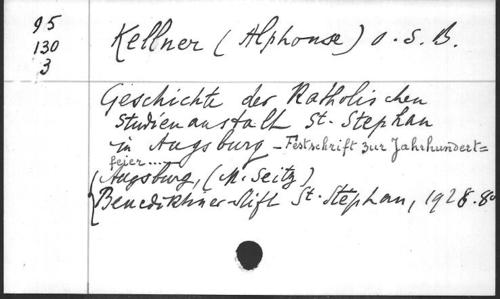 95
130
3
Kellner (Alphonse) O.S.B.
Geschichte der Katholischen
Studienanstalt St. Stephan
in Augsburg - Festschrift zur Jahrhundert=
feier....
(Augsburg, (M. Seitz)
Benediktiner-Stift St. Stephan, 1928. 8°